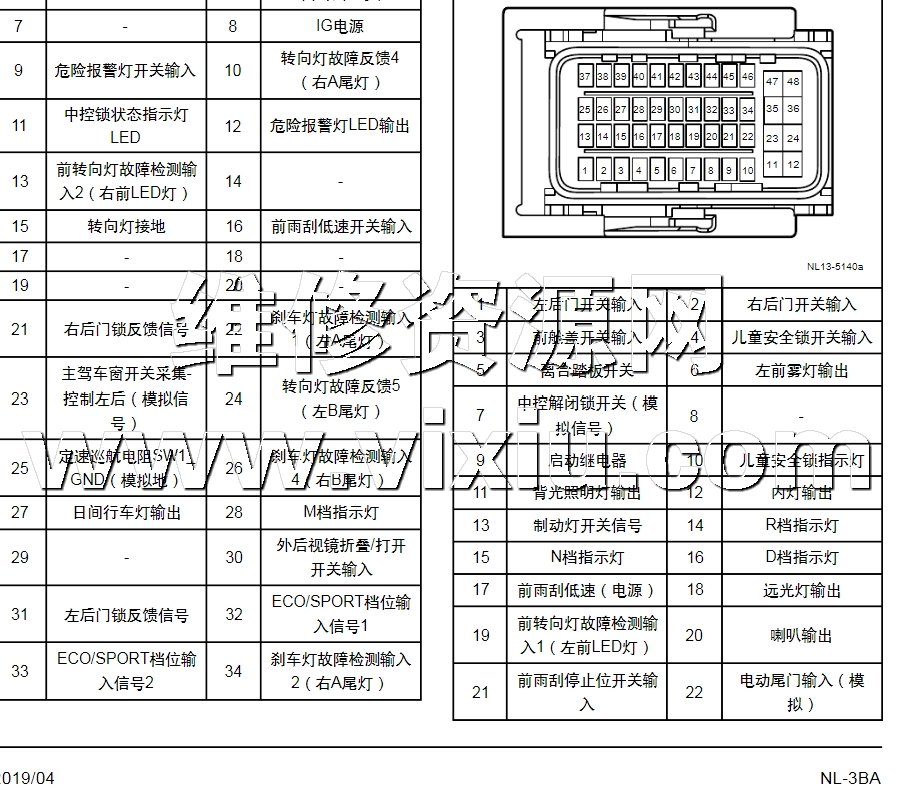 7 - 8 IG电源
9 危险报警灯开关输入 10 转向灯故障反馈4
（右A尾灯）
11 中控锁状态指示灯
LED 12 危险报警灯LED输出
13 前转向灯故障检测输
入2（右前LED灯） 14 -
15 转向灯接地 16 前雨刮低速开关输入
17 - 18 -
19 - 20 -
21 右后门锁反馈信号 22 刹车灯故障检测输入
1（左A尾灯）
23 主驾车窗开关采集-
控制左后（模拟信
号） 24 转向灯故障反馈5
（左B尾灯）
25 定速巡航电阻SW1_
GND（模拟地） 26 刹车灯故障检测输入
4（右B尾灯）
27 日间行车灯输出 28 M档指示灯
29 - 30 外后视镜折叠/打开
开关输入
31 左后门锁反馈信号 32 ECO/SPORT档位输
入信号1
33 ECO/SPORT档位输
入信号2 34 刹车灯故障检测输入
2（右A尾灯）
37 38 39 40 41 42 43 44 45 46 47 48
25 26 27 28 29 30 31 32 33 34 35 36
13 14 15 16 17 18 19 20 21 22 23 24
1 2 3 4 5 6 7 8 9 10 11 12
NL13-5140a
1 左后门开关输入 2 右后门开关输入
3 前舱盖开关输入 4 儿童安全锁开关输入
5 离合踏板开关 6 左前雾灯输出
7 中控解闭锁开关（模
拟信号） 8 -
9 启动继电器 10 儿童安全锁指示灯
11 背光照明灯输出 12 内灯输出
13 制动灯开关信号 14 R档指示灯
15 N档指示灯 16 D档指示灯
17 前雨刮低速（电源） 18 远光灯输出
19 前转向灯故障检测输
入1（左前LED灯） 20 喇叭输出
21 前雨刮停止位开关输
入 22 电动尾门输入（模
拟）
维修资源网
www.vixiu.com
2019/04 NL-3BA